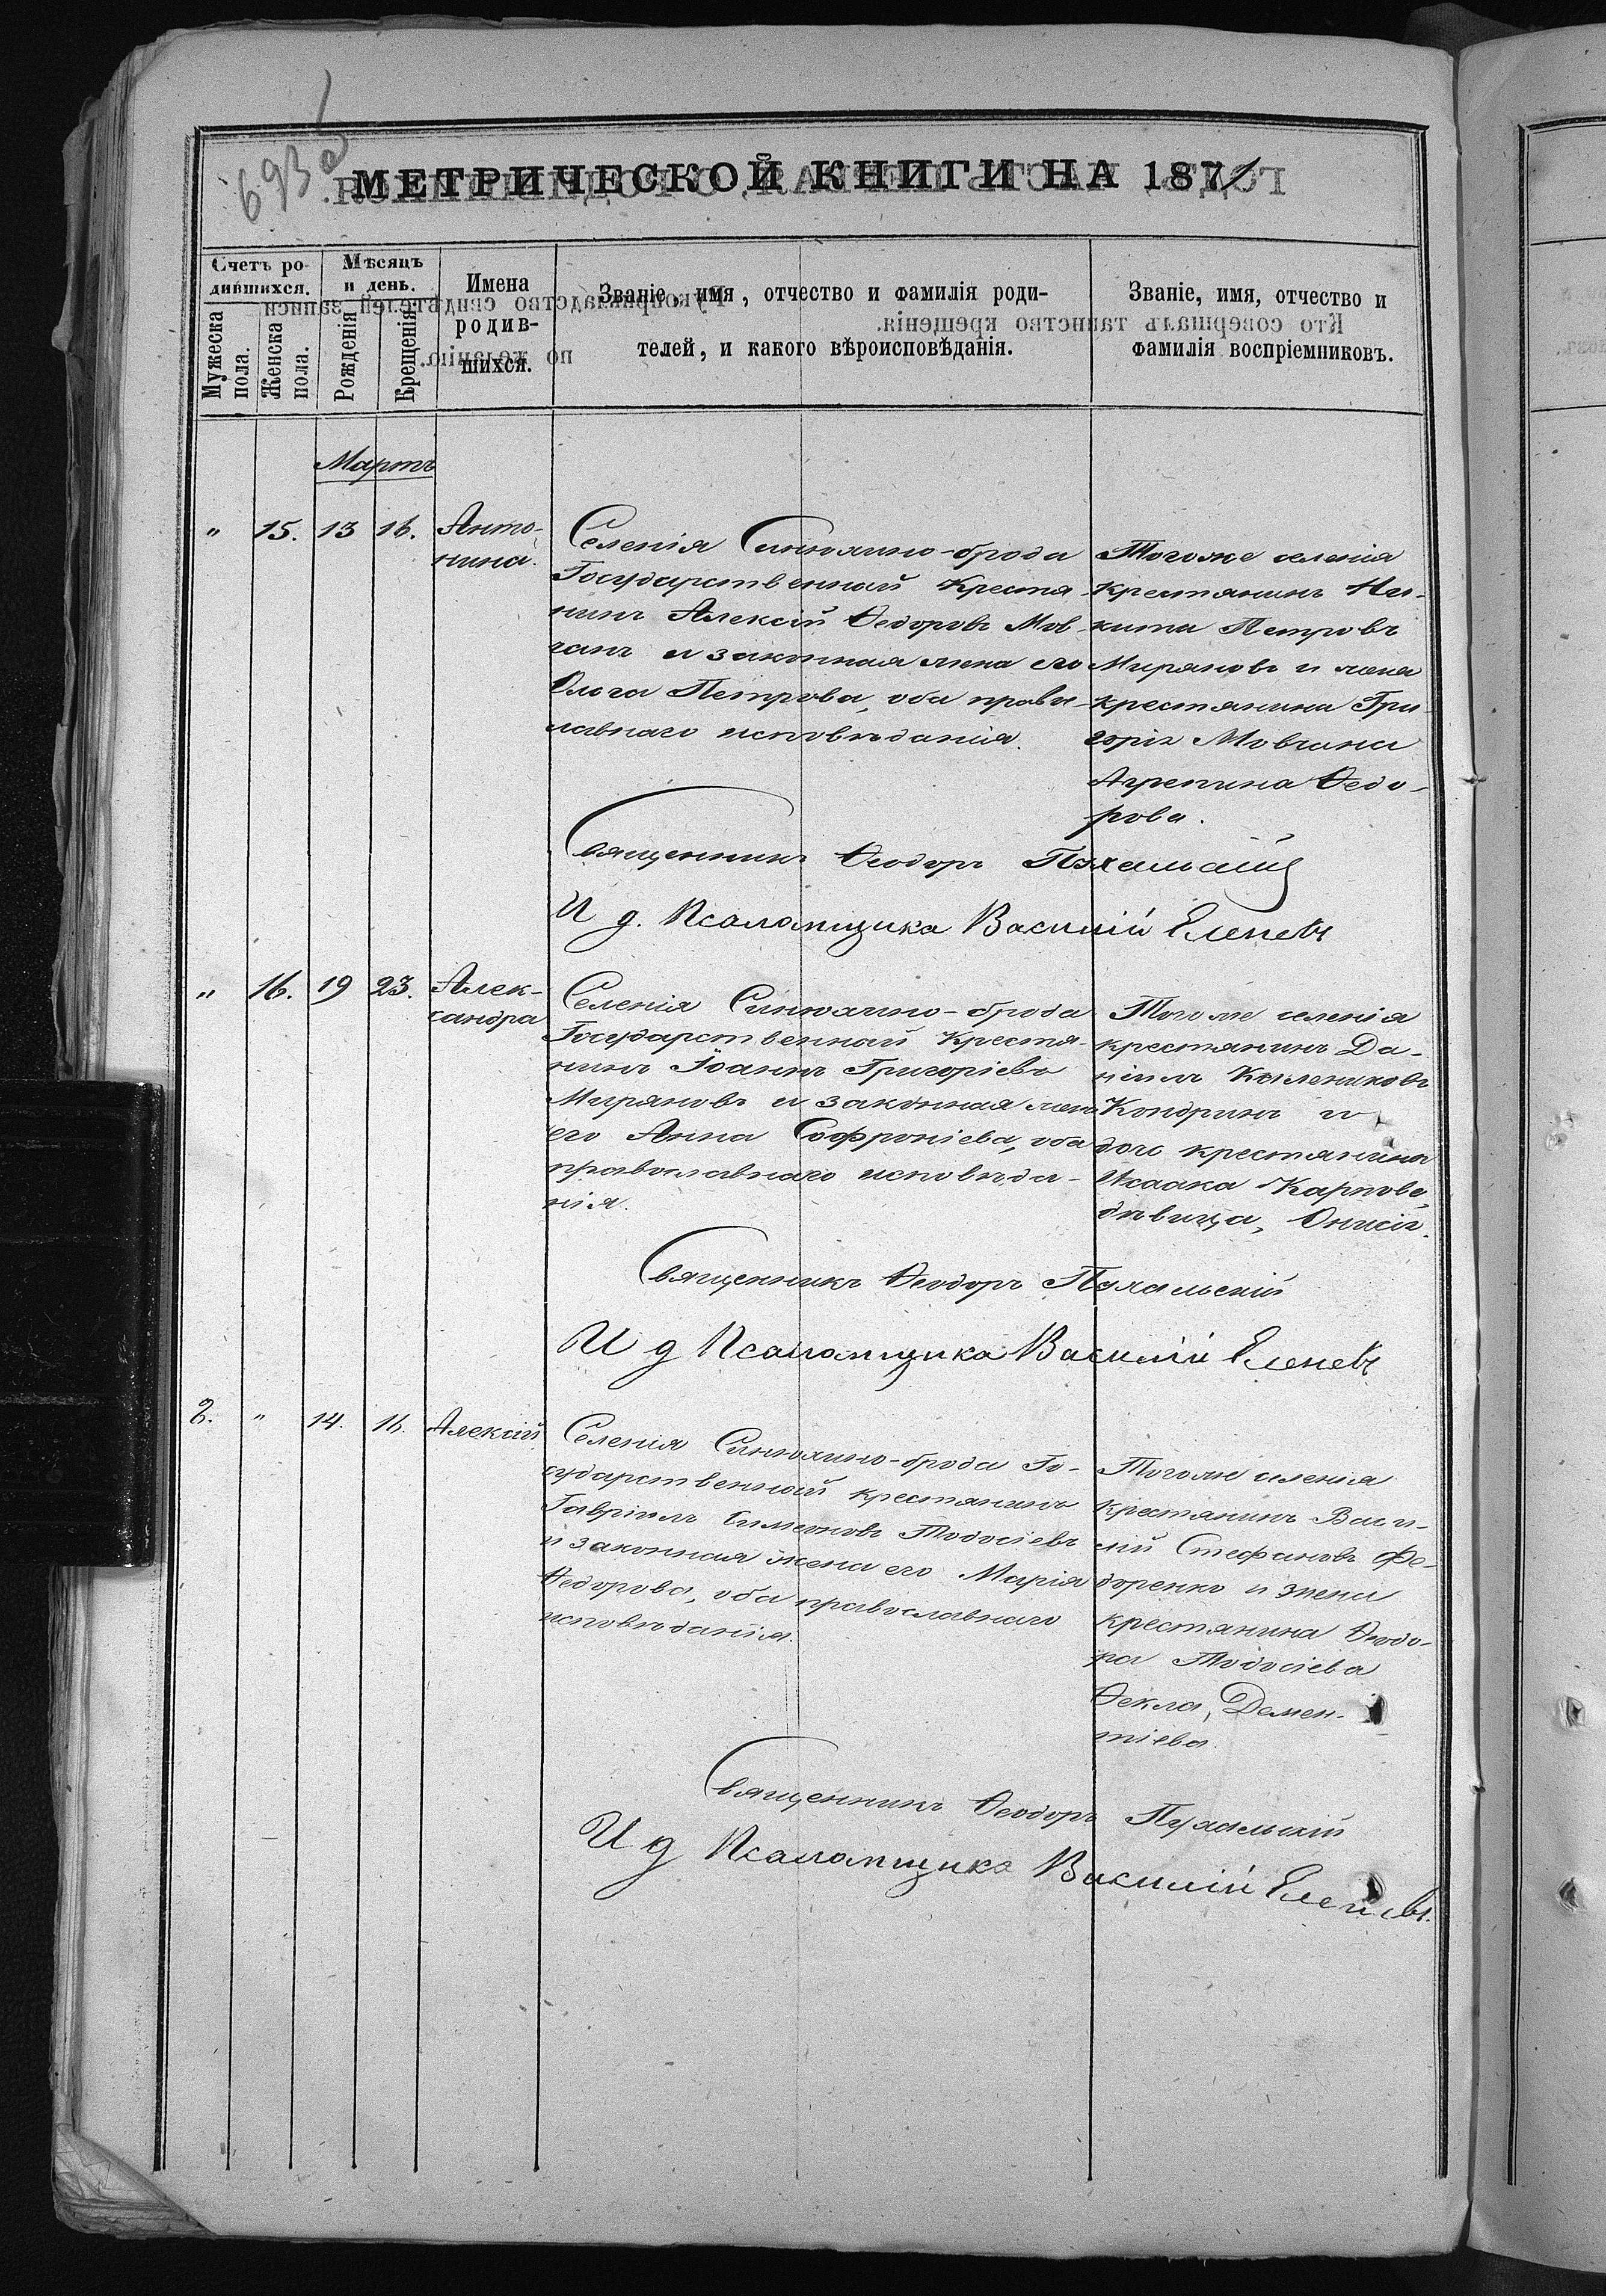 693 об
МЕТРИЧЕСКОЙ КНИГИ НА 1871
Счетъ ро-
дившихся.
Мужеска
пола.
Женска
пола.
Мѣсяцъ
и день.
Рожденія
Крещенія
Имена
родив-
шихся.
Званіе, имя, отчество и фамилія роди-
телей, и какого вѣроисповѣданія.
Званіе, имя, отчество и
фамилія воспріемниковъ.
Мартъ
" 15. 13 16.
Анто-
нина.
Селенія Синюхино-брода
Государственный Крестя-
нинъ Алексій Ѳедоровъ Мов-
чанъ и законная жена его
Ольга Петрова, оба право-
славнаго исповѣданія.
Тогоже селенія
крестянинъ Ни-
кита Петровъ
Миряновъ и жена
крестянина Гри-
горія Мовчана
Агрепина Ѳедо-
рова.
Священникъ Ѳеодоръ
И д. Псаломщика Василій Еленевъ
" 16. 19 23.
Алек-
сандра
Селенія Синюхино-брода
Государственный Крестя-
нинъ Іоаннъ Григоріевъ
Миряновъ и законная жена
его Анна Софроніева, оба
православнаго исповѣда-
нія.
Тогоже селенія
крестянинъ Да-
ніилъ Калениковъ
Кондринъ и
дочь крестянина
Исаака Карпова,
дѣвица, Онисія.
Священникъ Ѳеодоръ Пухальскій
И д Псаломщика Василій Еленевъ
2. " 14. 16.
Алексій
Селенія Синюхино-брода Го-
сударственный крестянинъ
Гавріилъ Симеоновъ Тодосіевъ
и законная жена его Марія
Ѳедорова, оба православнаго
исповѣданія.
Тогоже селенія
крестянинъ Васи-
лій Стефановъ Фе-
доренко и жена
крестянина Ѳеодо-
ра Тодосіева
Ѳекла, Демен-
тіева.
Священникъ Ѳеодоръ Пухальскій
И д Псаломщика Василій Еленевъ.